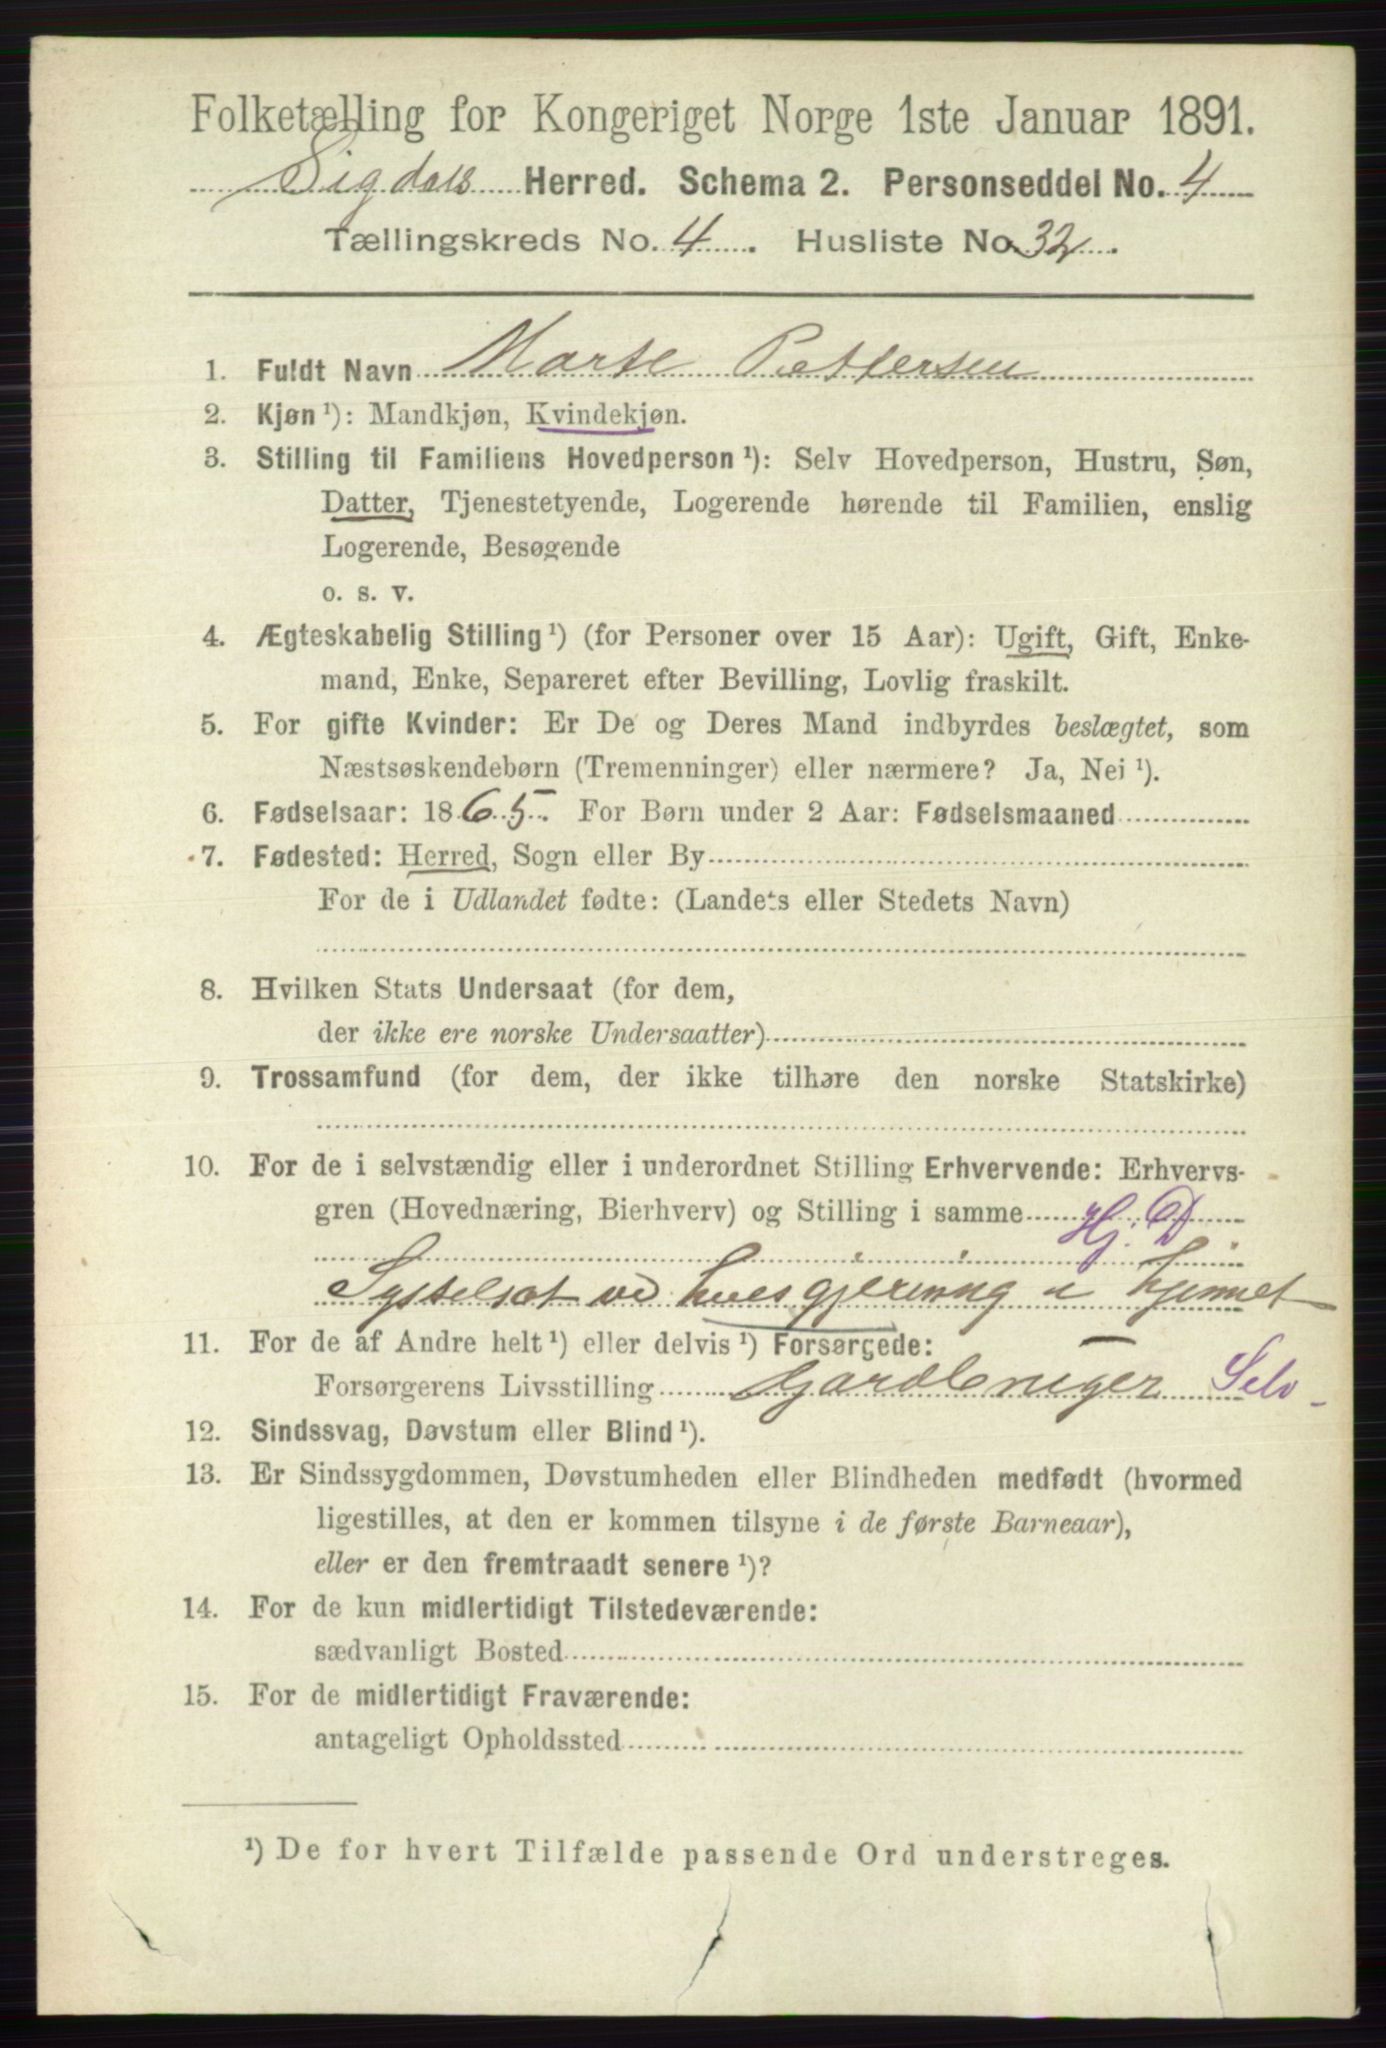 Folketælling for Kongeriget Norge 1ste Januar 1891.
Sigdals Herred. Schema 2. Personseddel No. 4
Tællingskreds No. 4. Husliste No. 32.
1. Fuldt Navn Marte Pettersen
2. Kjøn ¹): Mandkjøn, Kvindekjøn.
3. Stilling til Familiens Hovedperson ¹): Selv Hovedperson, Hustru, Søn,
Datter, Tjenestetyende, Logerende hørende til Familien, enslig
Logerende, Besøgende
o. s. v.
4. Ægteskabelig Stilling ¹) (for Personer over 15 Aar): Ugift, Gift, Enke-
mand, Enke, Separeret efter Bevilling, Lovlig fraskilt.
5. For gifte Kvinder: Er De og Deres Mand indbyrdes beslægtet, som
Næstsøskendebørn (Tremenninger) eller nærmere? Ja, Nei ¹).
6. Fødselsaar: 1865. For Børn under 2 Aar: Fødselsmaaned
7. Fødested: Herred, Sogn eller By
For de i Udlandet fødte: (Landets eller Stedets Navn)
8. Hvilken Stats Undersaat (for dem,
der ikke ere norske Undersaatter)
9. Trossamfund (for dem, der ikke tilhøre den norske Statskirke)
10. For de i selvstændig eller i underordnet Stilling Erhvervende: Erhvervs-
gren (Hovednæring, Bierhverv) og Stilling i samme Hj. D
Systelsat ved husgjerning i hjemmet
11. For de af Andre helt ¹) eller delvis ¹) Forsørgede:
Forsørgerens Livsstilling Gardbruger Selv
12. Sindssvag, Døvstum eller Blind ¹).
13. Er Sindssygdommen, Døvstumheden eller Blindheden medfødt (hvormed
ligestilles, at den er kommen tilsyne i de første Barneaar),
eller er den fremtraadt senere ¹)?
14. For de kun midlertidigt Tilstedeværende:
sædvanligt Bosted
15. For de midlertidigt Fraværende:
antageligt Opholdssted
¹) De for hvert Tilfælde passende Ord understreges.